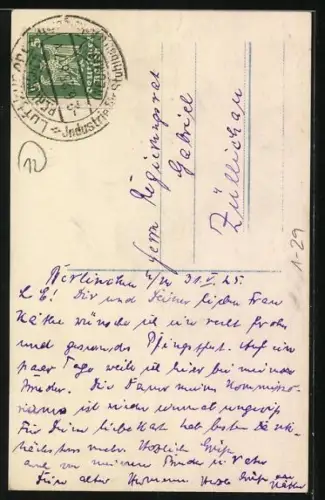 LUFTKUR
Industrie
12
Herrn Regierungsrat
Gabriel
Züllichau
1-29
Berlinchen N/M 31.V.25.
L E! Dir und Deiner lieben Frau
Käthe wünsche ich ein recht frohes
und gesundes Pfingstfest. Auf ein
paar Tage weile ich hier bei meinem
Bruder. Die Dauer meines Kommisso-
riums ist wieder einmal ungewiß
Für Deine liebe Karte hab besten Dank
nächstens mehr. Herzlich Grüße
auch von meinem Bruder
Dein alter Hermann Herzl Grüße